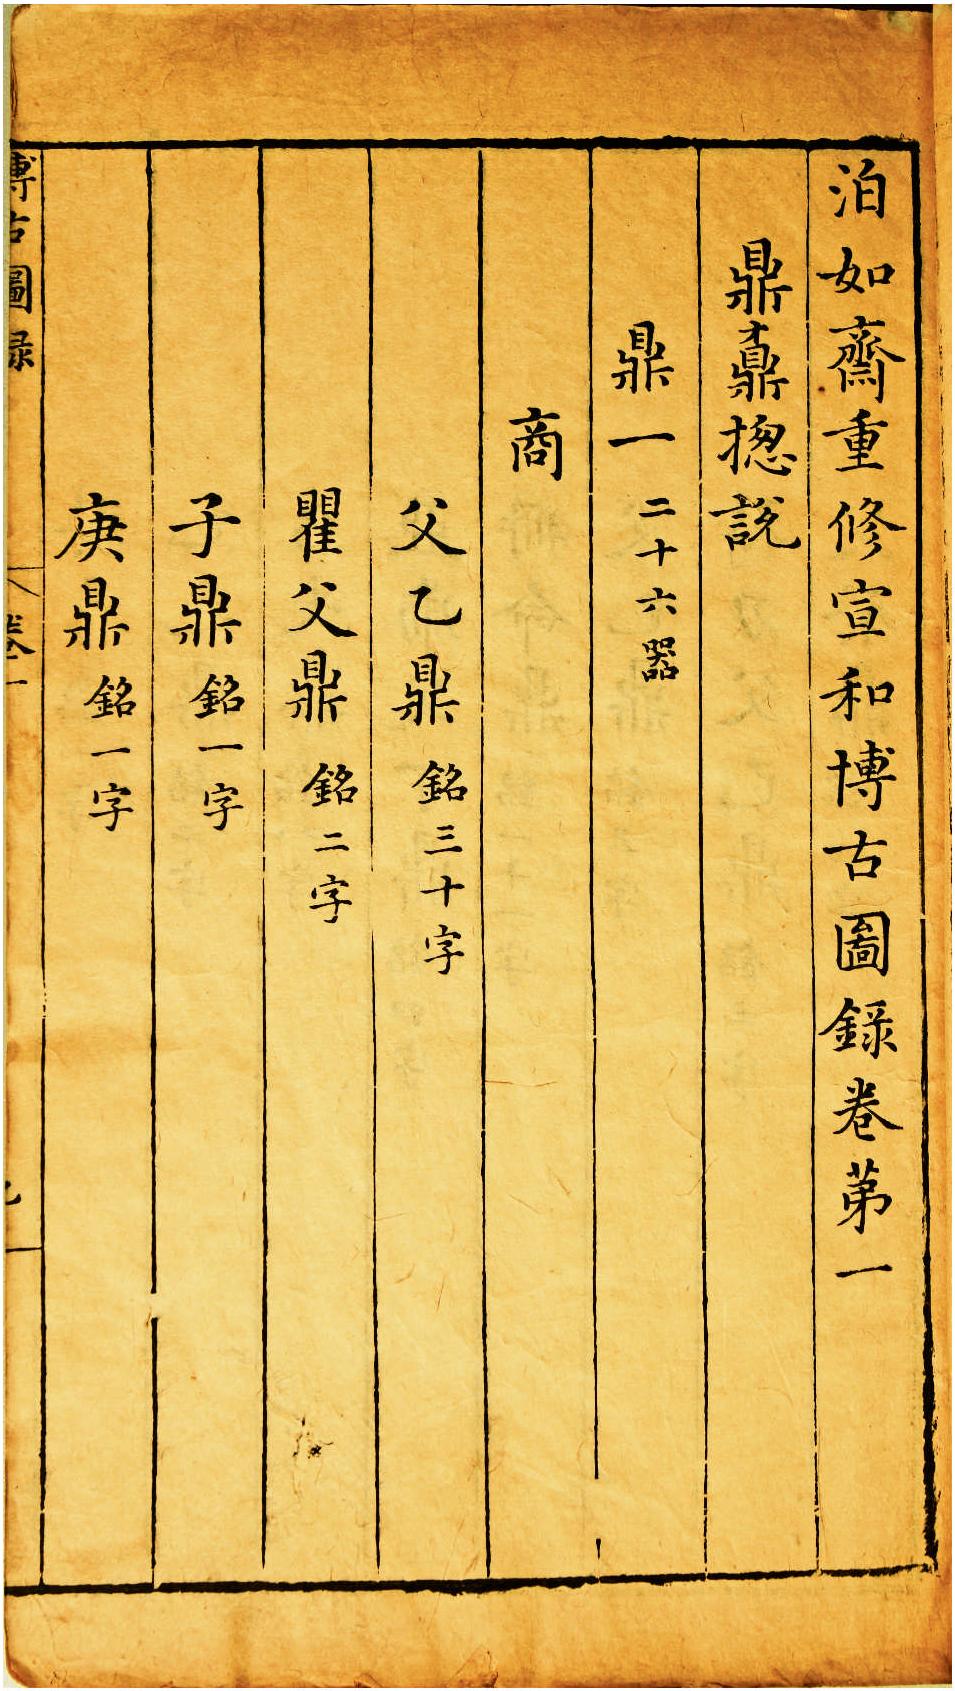 泊如齋重修宣和博古圖錄卷第一
鼎鼒揔說
鼎一 二十六器
商
父乙鼎 銘三十字
瞿父鼎 銘二字
子鼎 銘一字
庚鼎 銘一字
博古圖録
卷一